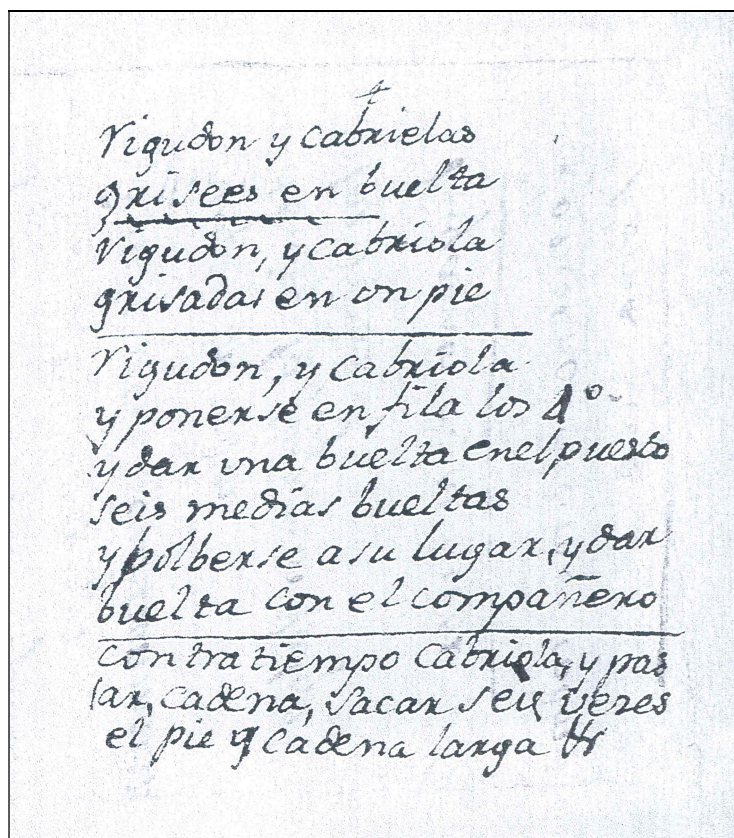 Vigudon y cabrielas
grisees en buelta
Vigudon, y cabriola
grisadas en un pie
Vigudon, y cabriola
y ponerse en fila los 4º
y dar una buelta en el puesto
seis medias bueltas
y bolberse a su lugar, y dar
buelta con el compañero
contratiempo Cabriola, y pas
sar, cadena, sacar seis vezes
el pie y cadena larga